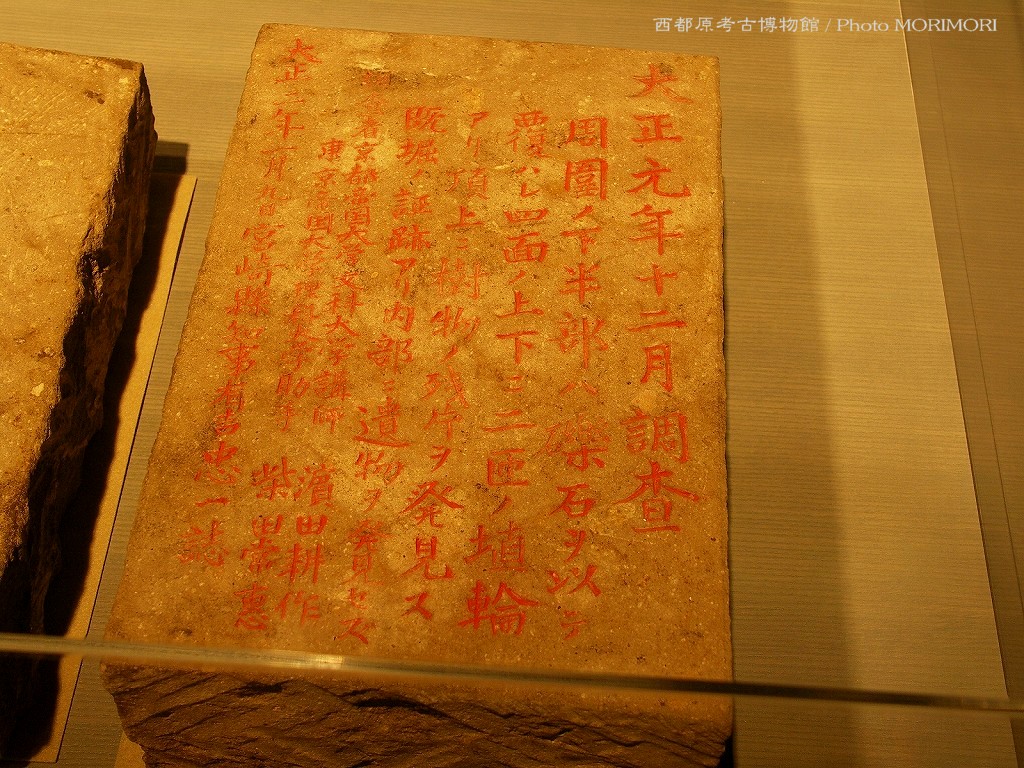 西都原考古博物館 / Photo MORIMORI
大正元年十二月調査
周圍ノ下半部ハ礫石ヲ以テ
覆ハレ四面ノ上下ニ二匝ノ埴輪
アリ頂上ニ樹物ノ残片ヲ発見ス
既掘ノ証跡アリ内部ニ遺物ヲ發見セズ
調査者京都帝国大学文科大学講師 濱田耕作
東京帝国大学理科大学助手 柴田常恵
大正二年一月九日宮崎縣知事有吉忠一誌